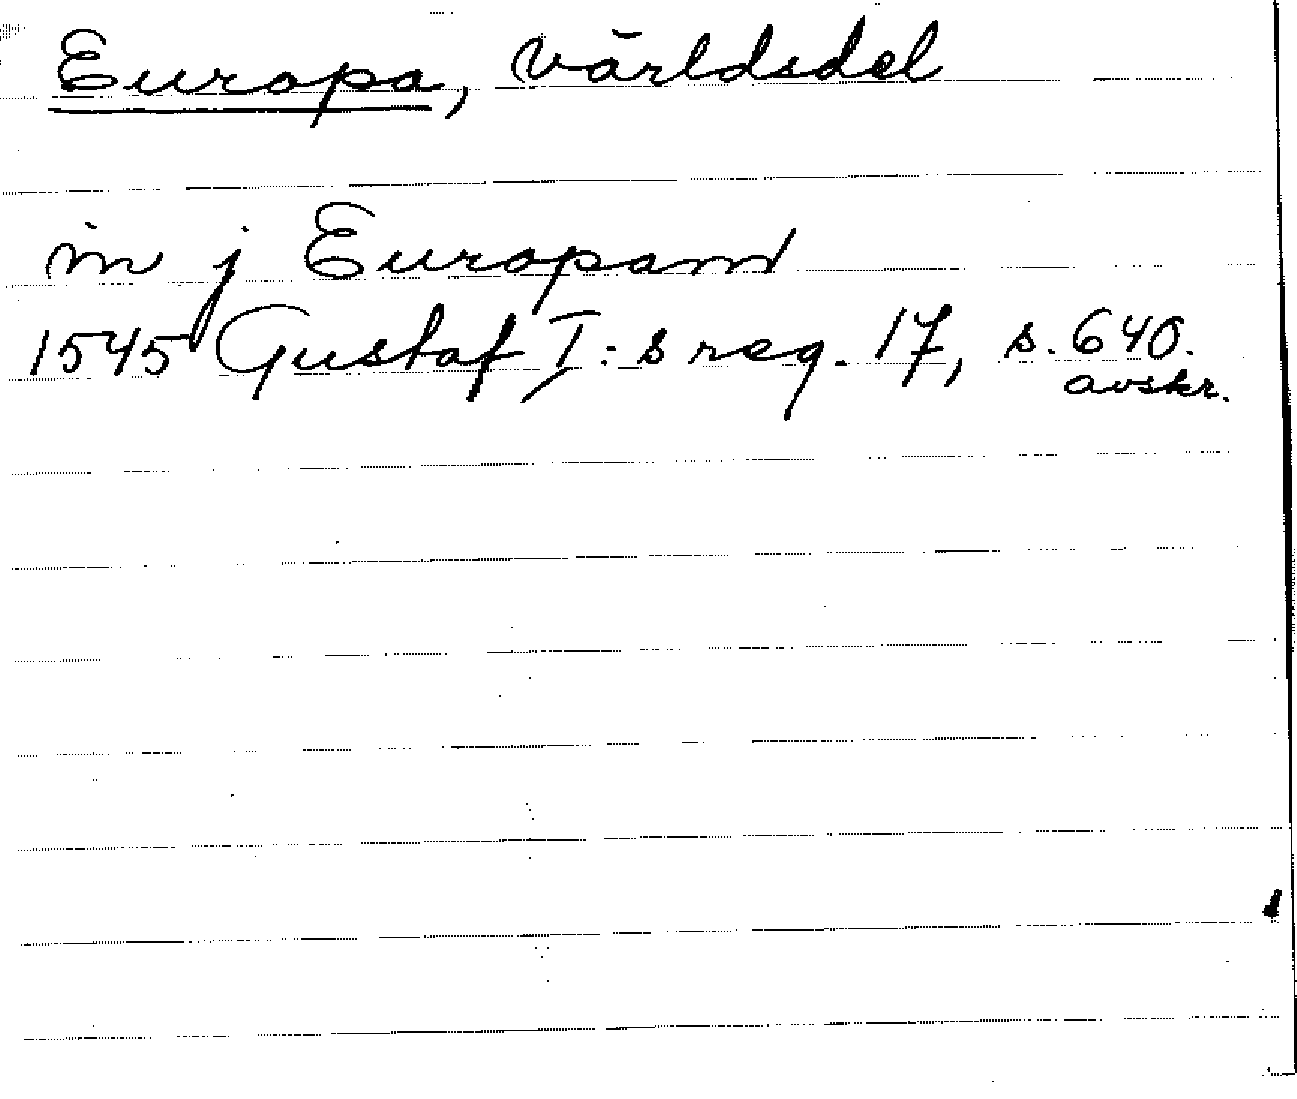 Europa, världsdel
in j Europam
1545 Gustaf I:s reg. 17, s. 640.
avskr.